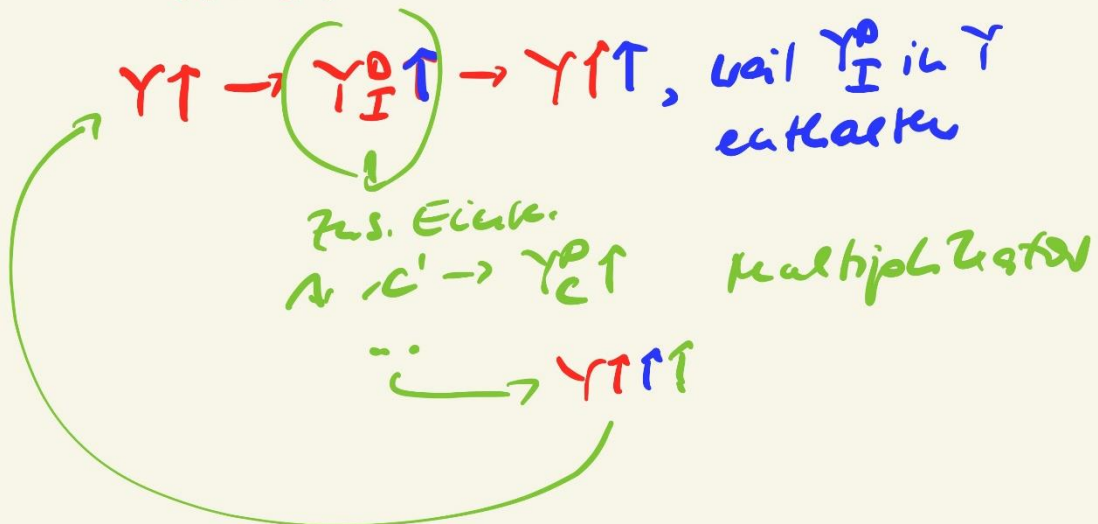 Y↑ → (Y_I^D ↑) → Y↑↑, weil Y_I^D in Y
enthalten
Zus. Eink.
· C' → Y_C^D ↑ Multiplikator
..
→ Y↑↑↑